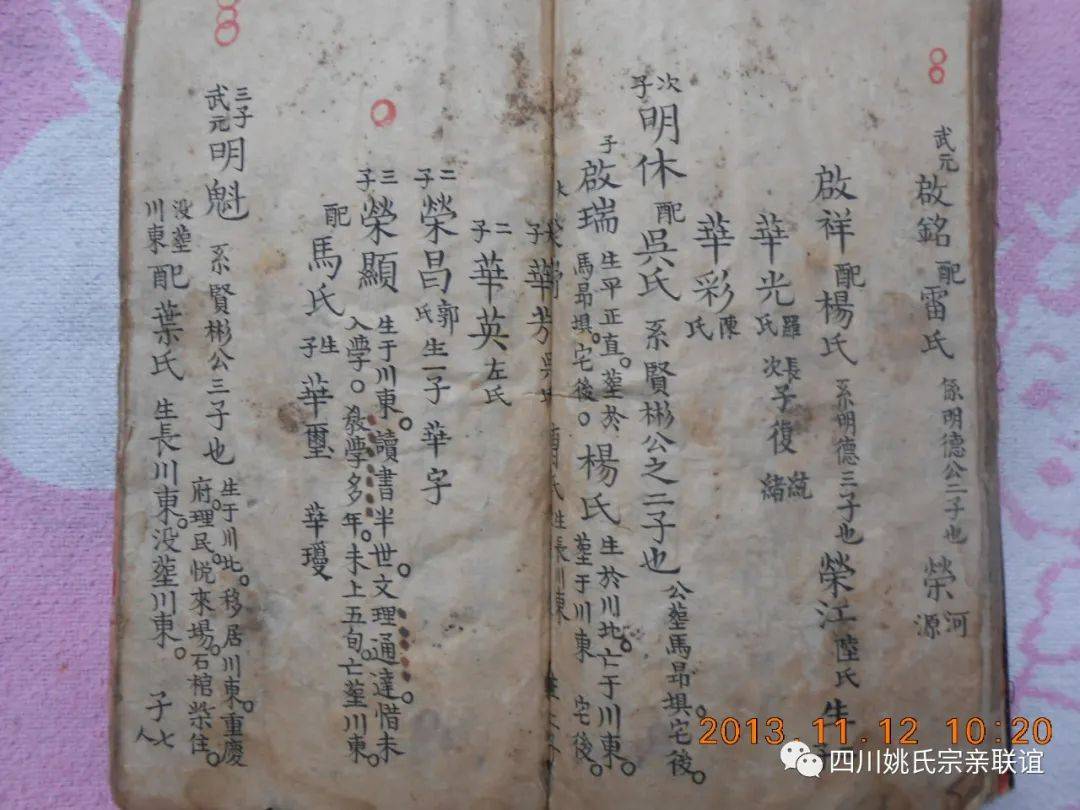 武元 啟銘 配雷氏 係明德公二子也 榮河源
啟祥 配楊氏 系明德三子也 榮江 陸氏 生
華光 羅氏 長次子復
華彩 陳氏
次子 明休 配吳氏 系賢彬公之二子也 公塟馬昂埧宅後。
子 啟瑞 生平正直。塟於馬昂埧。宅後。 楊氏 生於川北。亡于川東。塟于川東 宅後。
子 華芳 生長川東
二子 華英 左氏
二子 榮昌 郭氏 生一子 華字
三子 榮顯 生于川東。讀書半世。文理通達。惜未入學。教學多年。未上五旬。亡塟川東。
配 馬氏 生子 華璽 華瓊
三子 武元 明魁 系賢彬公三子也 生于川北。移居川東。重慶府。理民。悅來場。石棺柴住。
没塟川東 配葉氏 生長川東。没塟川東。 子七人
2013.11.12 10:20
四川姚氏宗亲联谊